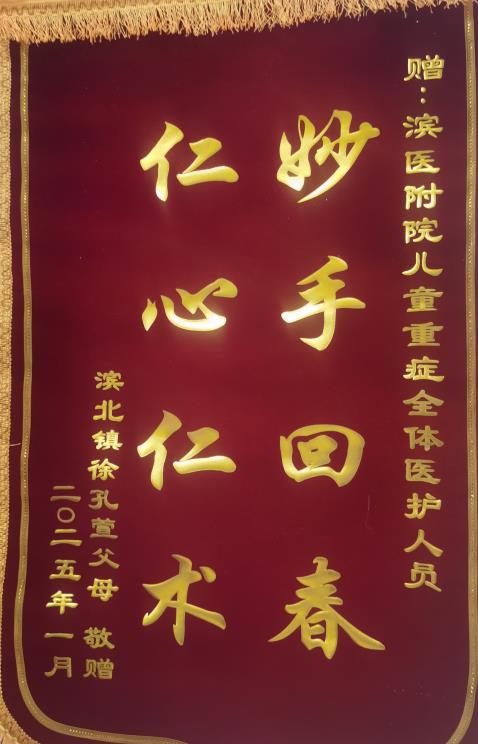 赠：滨医附院儿童重症全体医护人员
妙手回春
仁心仁术
滨北镇徐孔萱父母 敬赠
二〇二五年一月